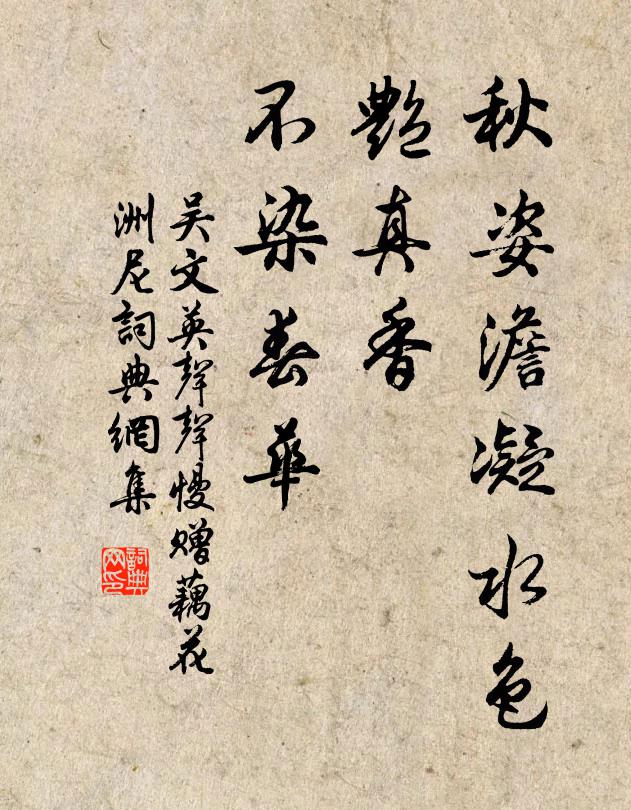 秋姿澹凝水色
艷真香
不染春華
吳文英聲聲慢贈藕花
洲尼詞典網集
詞典网印